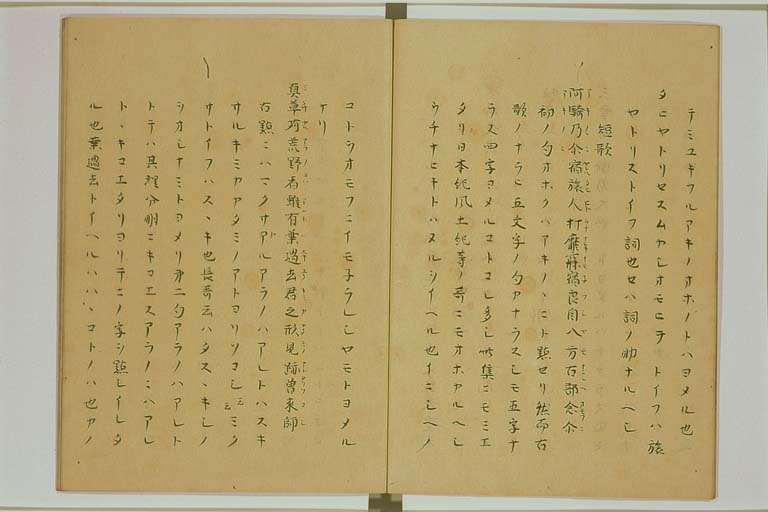 テミユキフルアキノオホノトハヨメル也
タヒヤトリセスムカシオモヒテトイフハ旅
ヤトリストイフ詞也セハ詞ノ助ナルヘシ
短歌
阿騎乃尒宿旅人打靡寐宿良目八方古部念尒
初ノ句オホクハアキノヽニト點セリ然而右
歌ノナラヒ五文字ノ句カナラスシモ五字ナ
ラス四字ヨメルコトコレ多シ此集ニモミエ
タリ日本紀風土記等ノ哥ニモオホカルヘシ
ウチナヒキトハヌルシイヘル也イニシヘノ
コトシオモフニイモネラレシヤモトヨメル
ケリ
真草苅荒野者雖有葉過去君之形見跡曽来師
古點ニハマクサカルアラノハアレトハスキ
サルキミカカタミノアトヨリソコシ云ミク
サトイフハスヽキ也長哥云ハタスヽキシノ
シオシナミトヨメリ第二句アラノハアレト
トテハ其理分明ニキコエスアラノニハアレ
トヽキコエタリヨリテニノ字シ點シイレタ
ル也葉過去トイヘルハハヽコトノハ也カノ